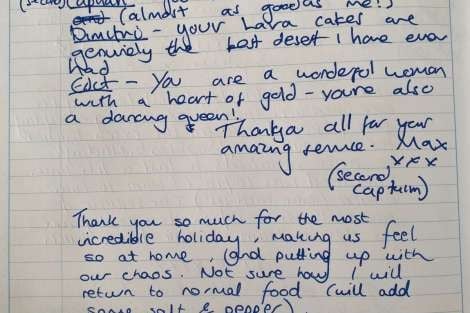 (second Captain
and (almost as good as me!)
Dimitri - your Lava cakes are
genuiely the best desert I have ever
had
Edit - You are a wonderful woman
with a heart of gold - youre also
a dancing queen!
Thankya all for your
amazing service. Max
xxx
(second
Captain)
Thank you so much for the most
incredible holiday, making us feel
so at home, (and putting up with
our chaos. Not sure how I will
return to normal food (will add
some salt & pepper)